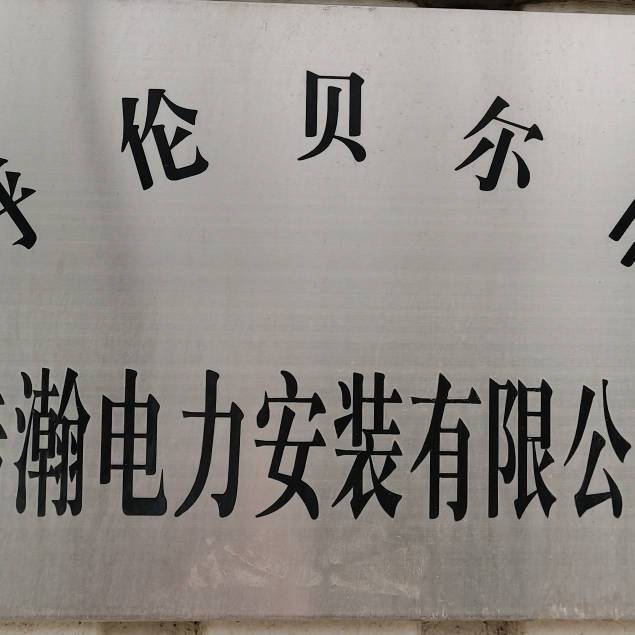 呼伦贝尔
瀚电力安装有限公